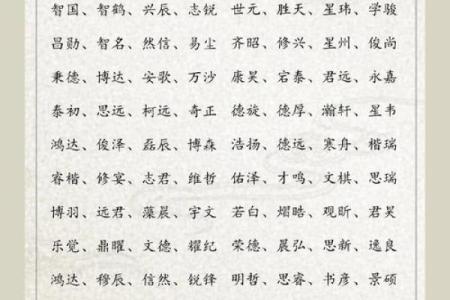 智国、智鹤、兴辰、志锐 世元、胜天、星玮、学骏
昌勋、智名、然信、易尘 齐昭、修兴、星州、俊尚
秉德、博达、安歌、万沙 康昊、宕泰、君远、永嘉
泰初、思远、柯远、奇正 德旋、德厚、瀚轩、星韦
鸿达、俊泽、磊辰、博森 浩扬、德远、寒舟、楷瑞
睿楷、修宴、志君、维哲 佑泽、才鸣、文棋、思瑞
博羽、远君、藻晨、宇文 若白、熠晧、观昕、君昊
乐觉、鼎曜、文德、耀纪 荣德、晨弘、思新、逸良
鸿达、穆辰、信然、锐锋 明哲、思睿、书彦、景硕